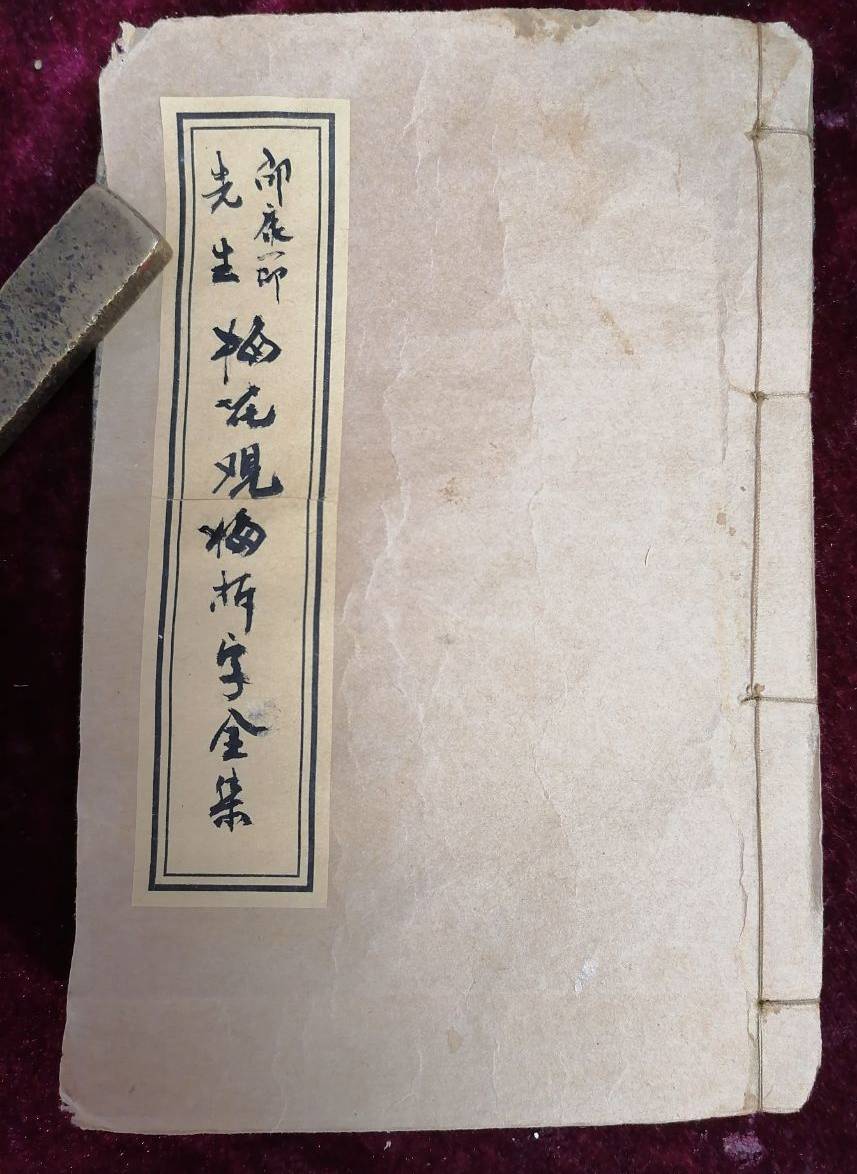 邵康节
先生
梅花观梅拆字全集